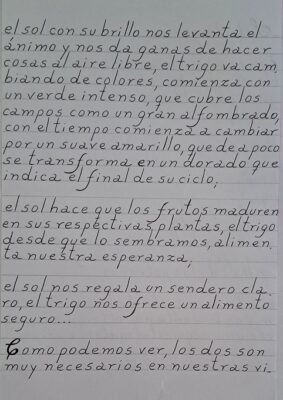 el sol con su brillo nos levanta el
ánimo y nos da ganas de hacer
cosas al aire libre, el trigo va cam_
biando de colores, comienza con
un verde intenso, que cubre los
campos como un gran alfombrado,
con el tiempo comienza a cambiar
por un suave amarillo, que de a poco
se transforma en un dorado que
indica el final de su ciclo;
el sol hace que los frutos maduren
en sus respectivas plantas, el trigo
desde que lo sembramos, alimen_
ta nuestra esperanza;
el sol nos regala un sendero cla_
ro, el trigo nos ofrece un alimento
seguro...
Como podemos ver, los dos son
muy necesarios en nuestras vi_